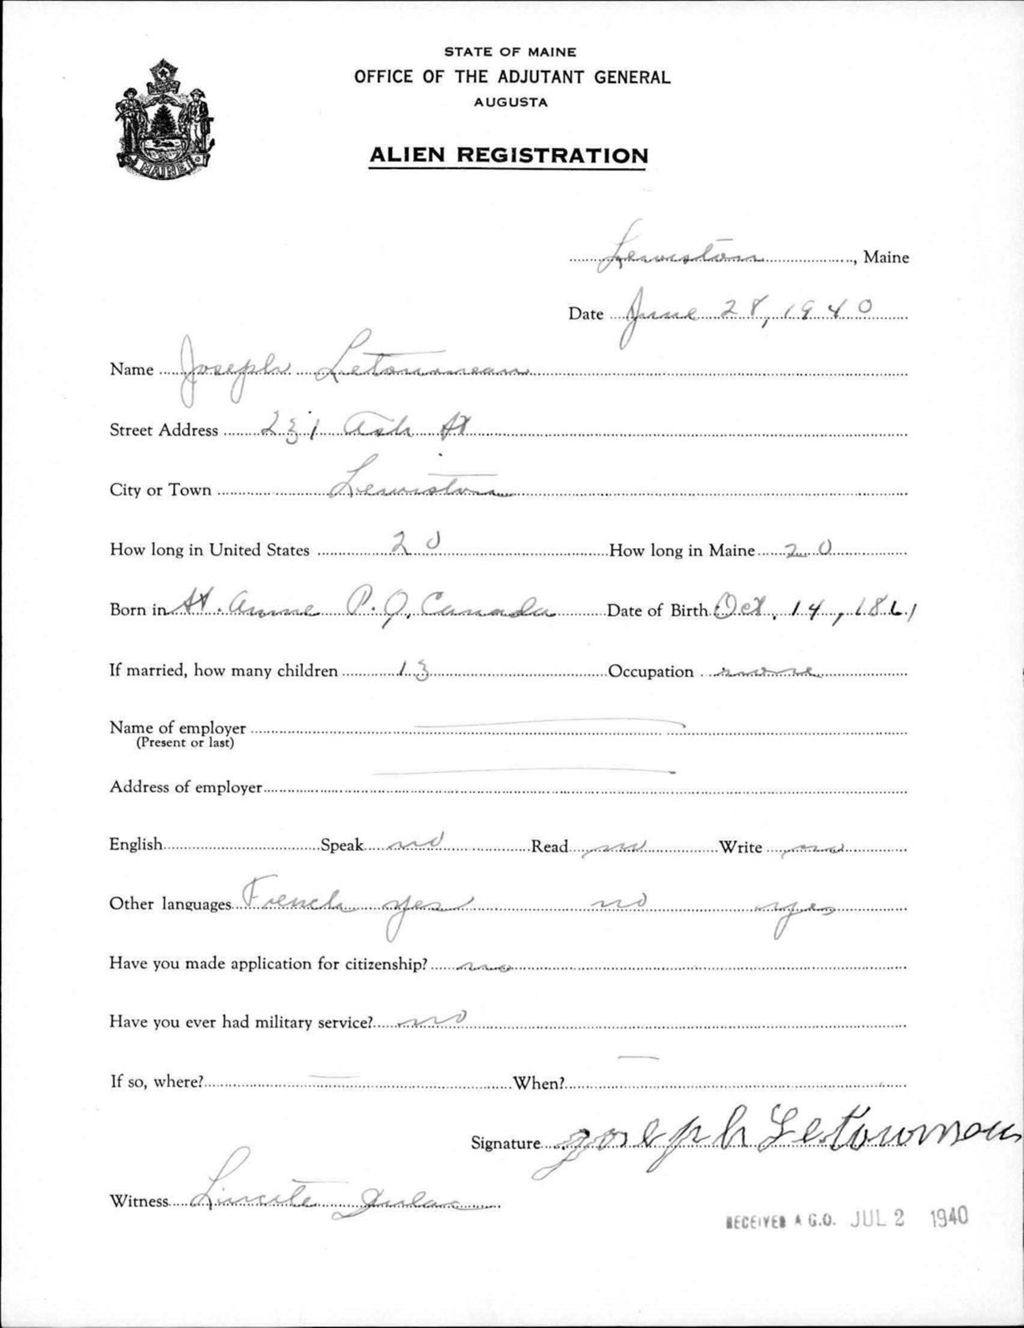 STATE OF MAINE
OFFICE OF THE ADJUTANT GENERAL
AUGUSTA
ALIEN REGISTRATION
MAINE
Lewiston, Maine
Date June 28, 1940
Name Joseph Letourneau
Street Address 231 Ash St
City or Town Lewiston
How long in United States 20 How long in Maine 20
Born in St. Anne P.Q. Canada Date of Birth Oct. 14, 1861
If married, how many children 13 Occupation none
Name of employer
(Present or last)
Address of employer
English Speak no Read no Write no
Other languages French yes no yes
Have you made application for citizenship? no
Have you ever had military service? no
If so, where? — When? —
Signature Joseph Letourneau
Witness Dulac
RECEIVED A.G.O. JUL 2 1940